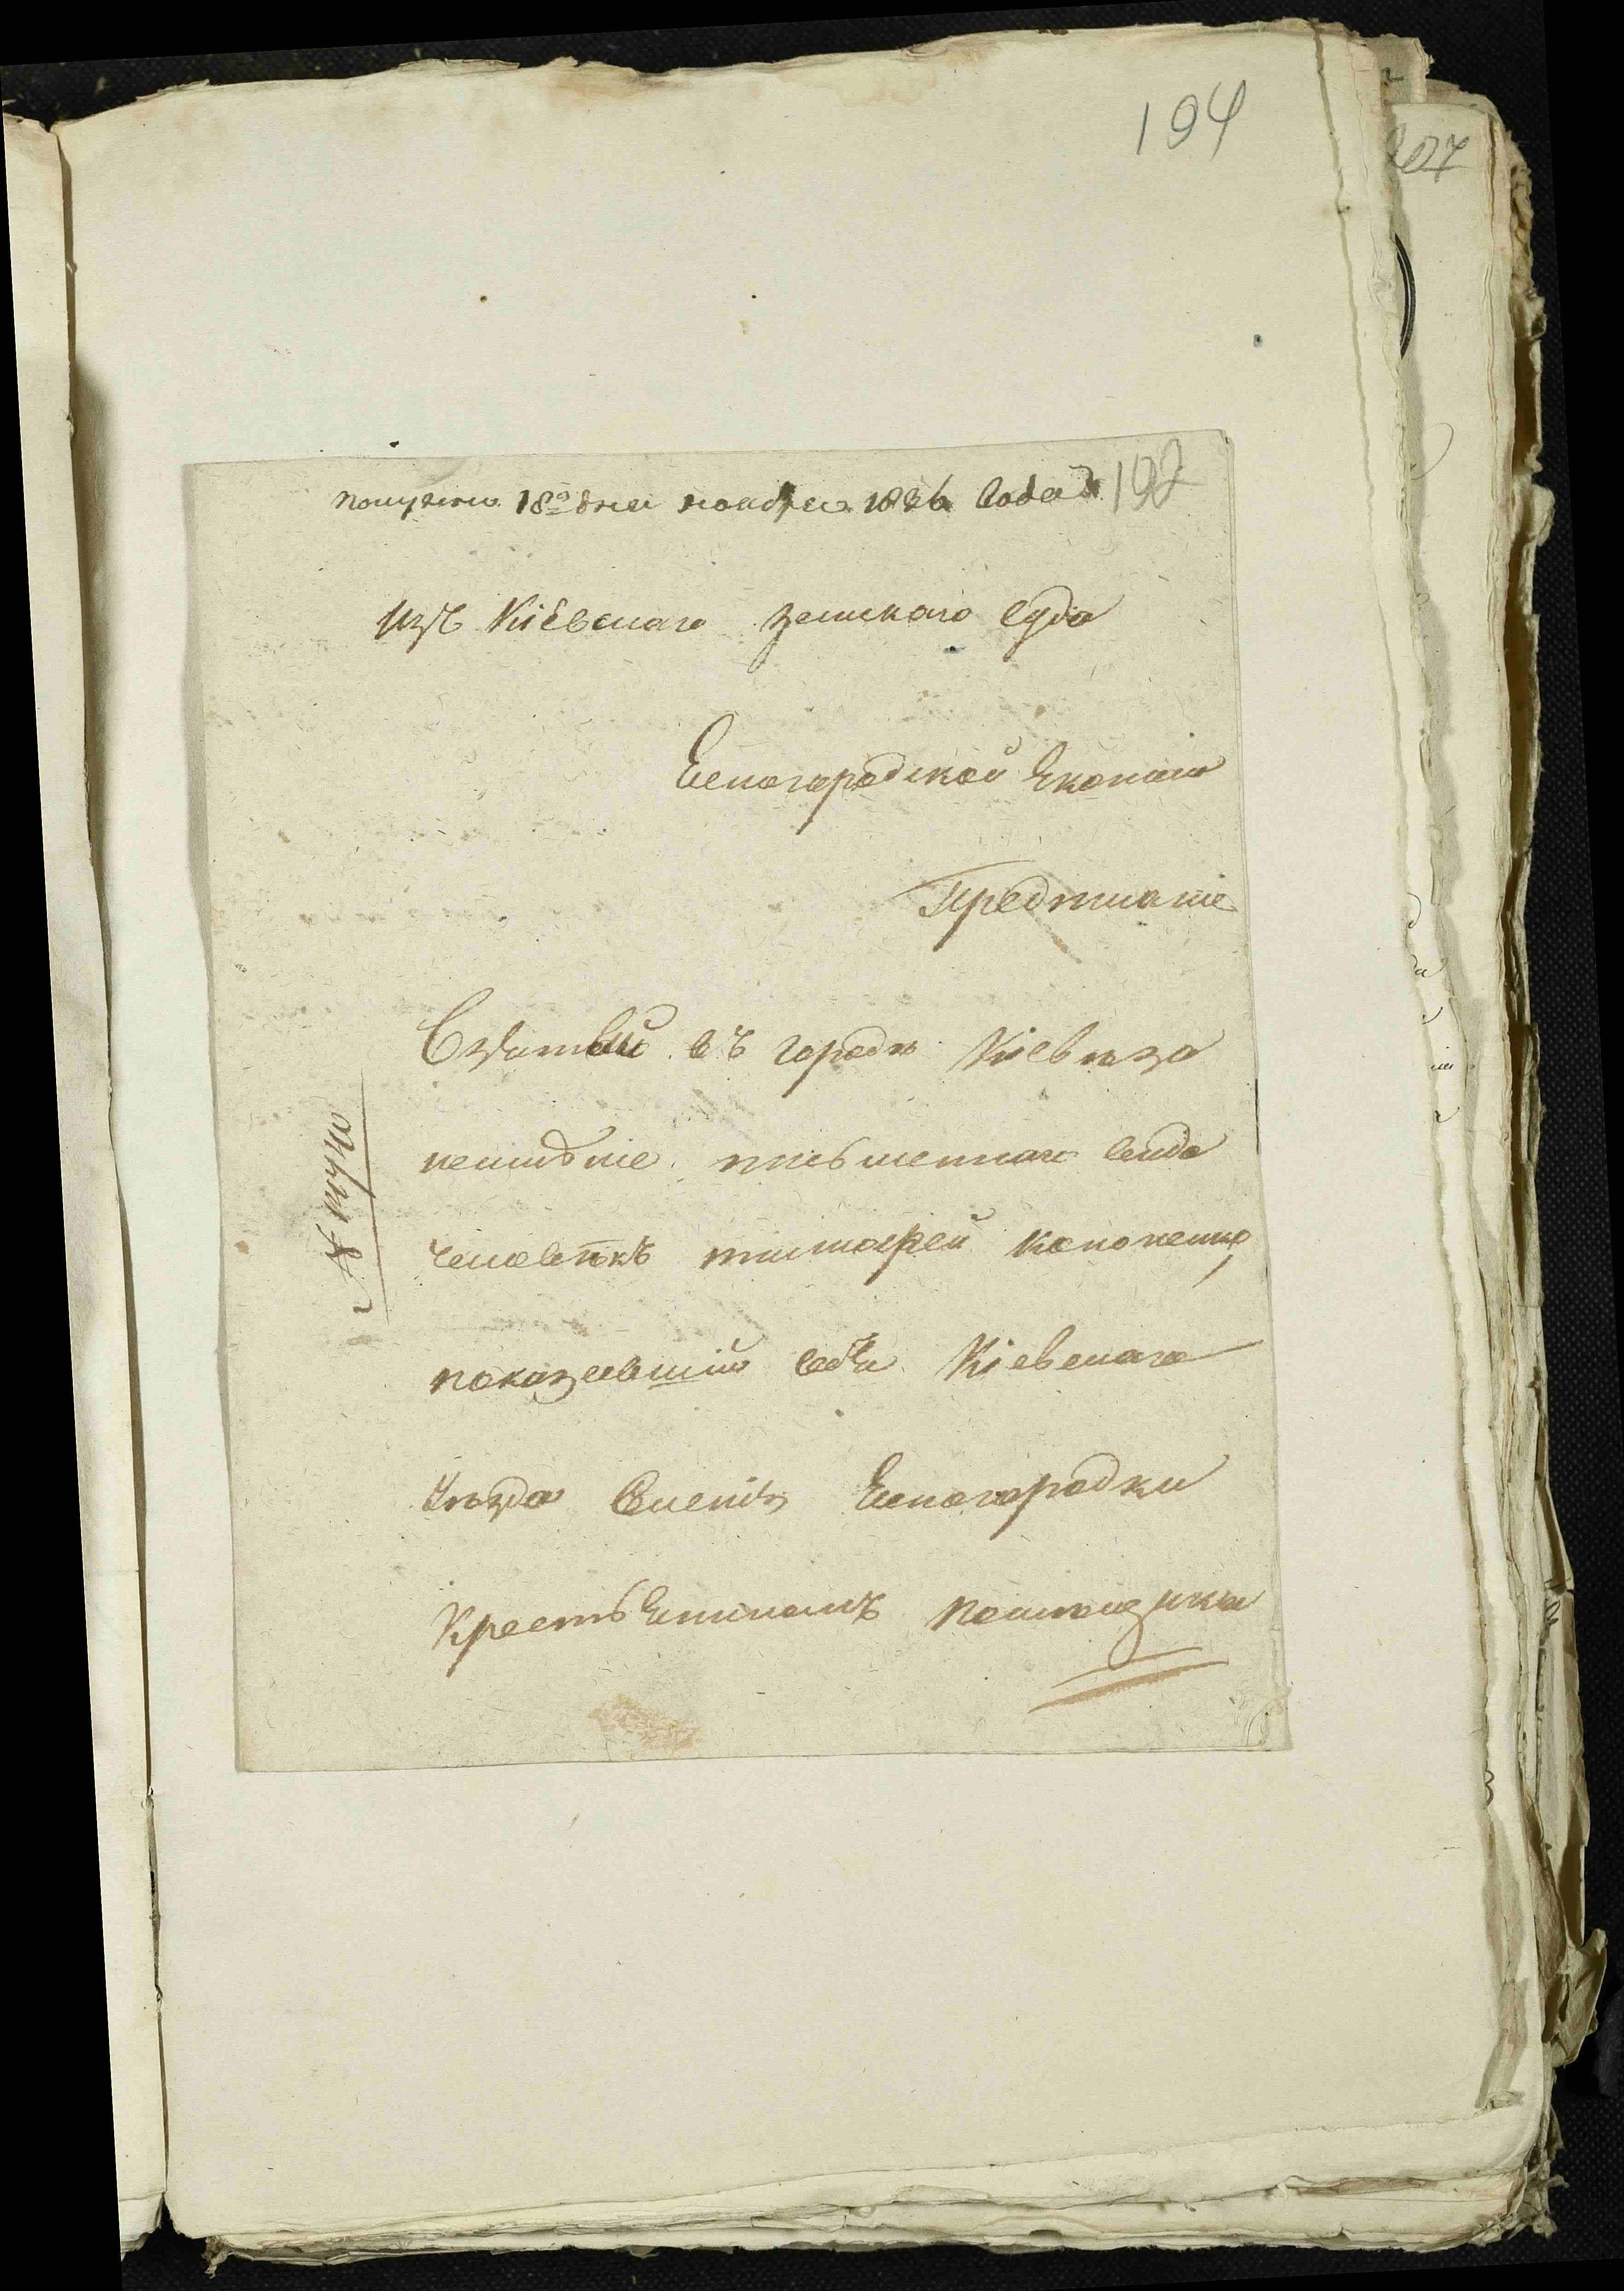 194
207
получено 18го дня ноября 1836 Года 192
Изъ Кіевскаго Земскаго Суда
Бѣлогородской Экономіи
Предписаніе
Взятый въ городѣ Кіевѣ за
неимѣніе письменнаго вида
человѣкъ тимофей
показавшій себя Кіевскаго
Уѣзда Бѣлогородки
Крестьяниномъ помѣщика